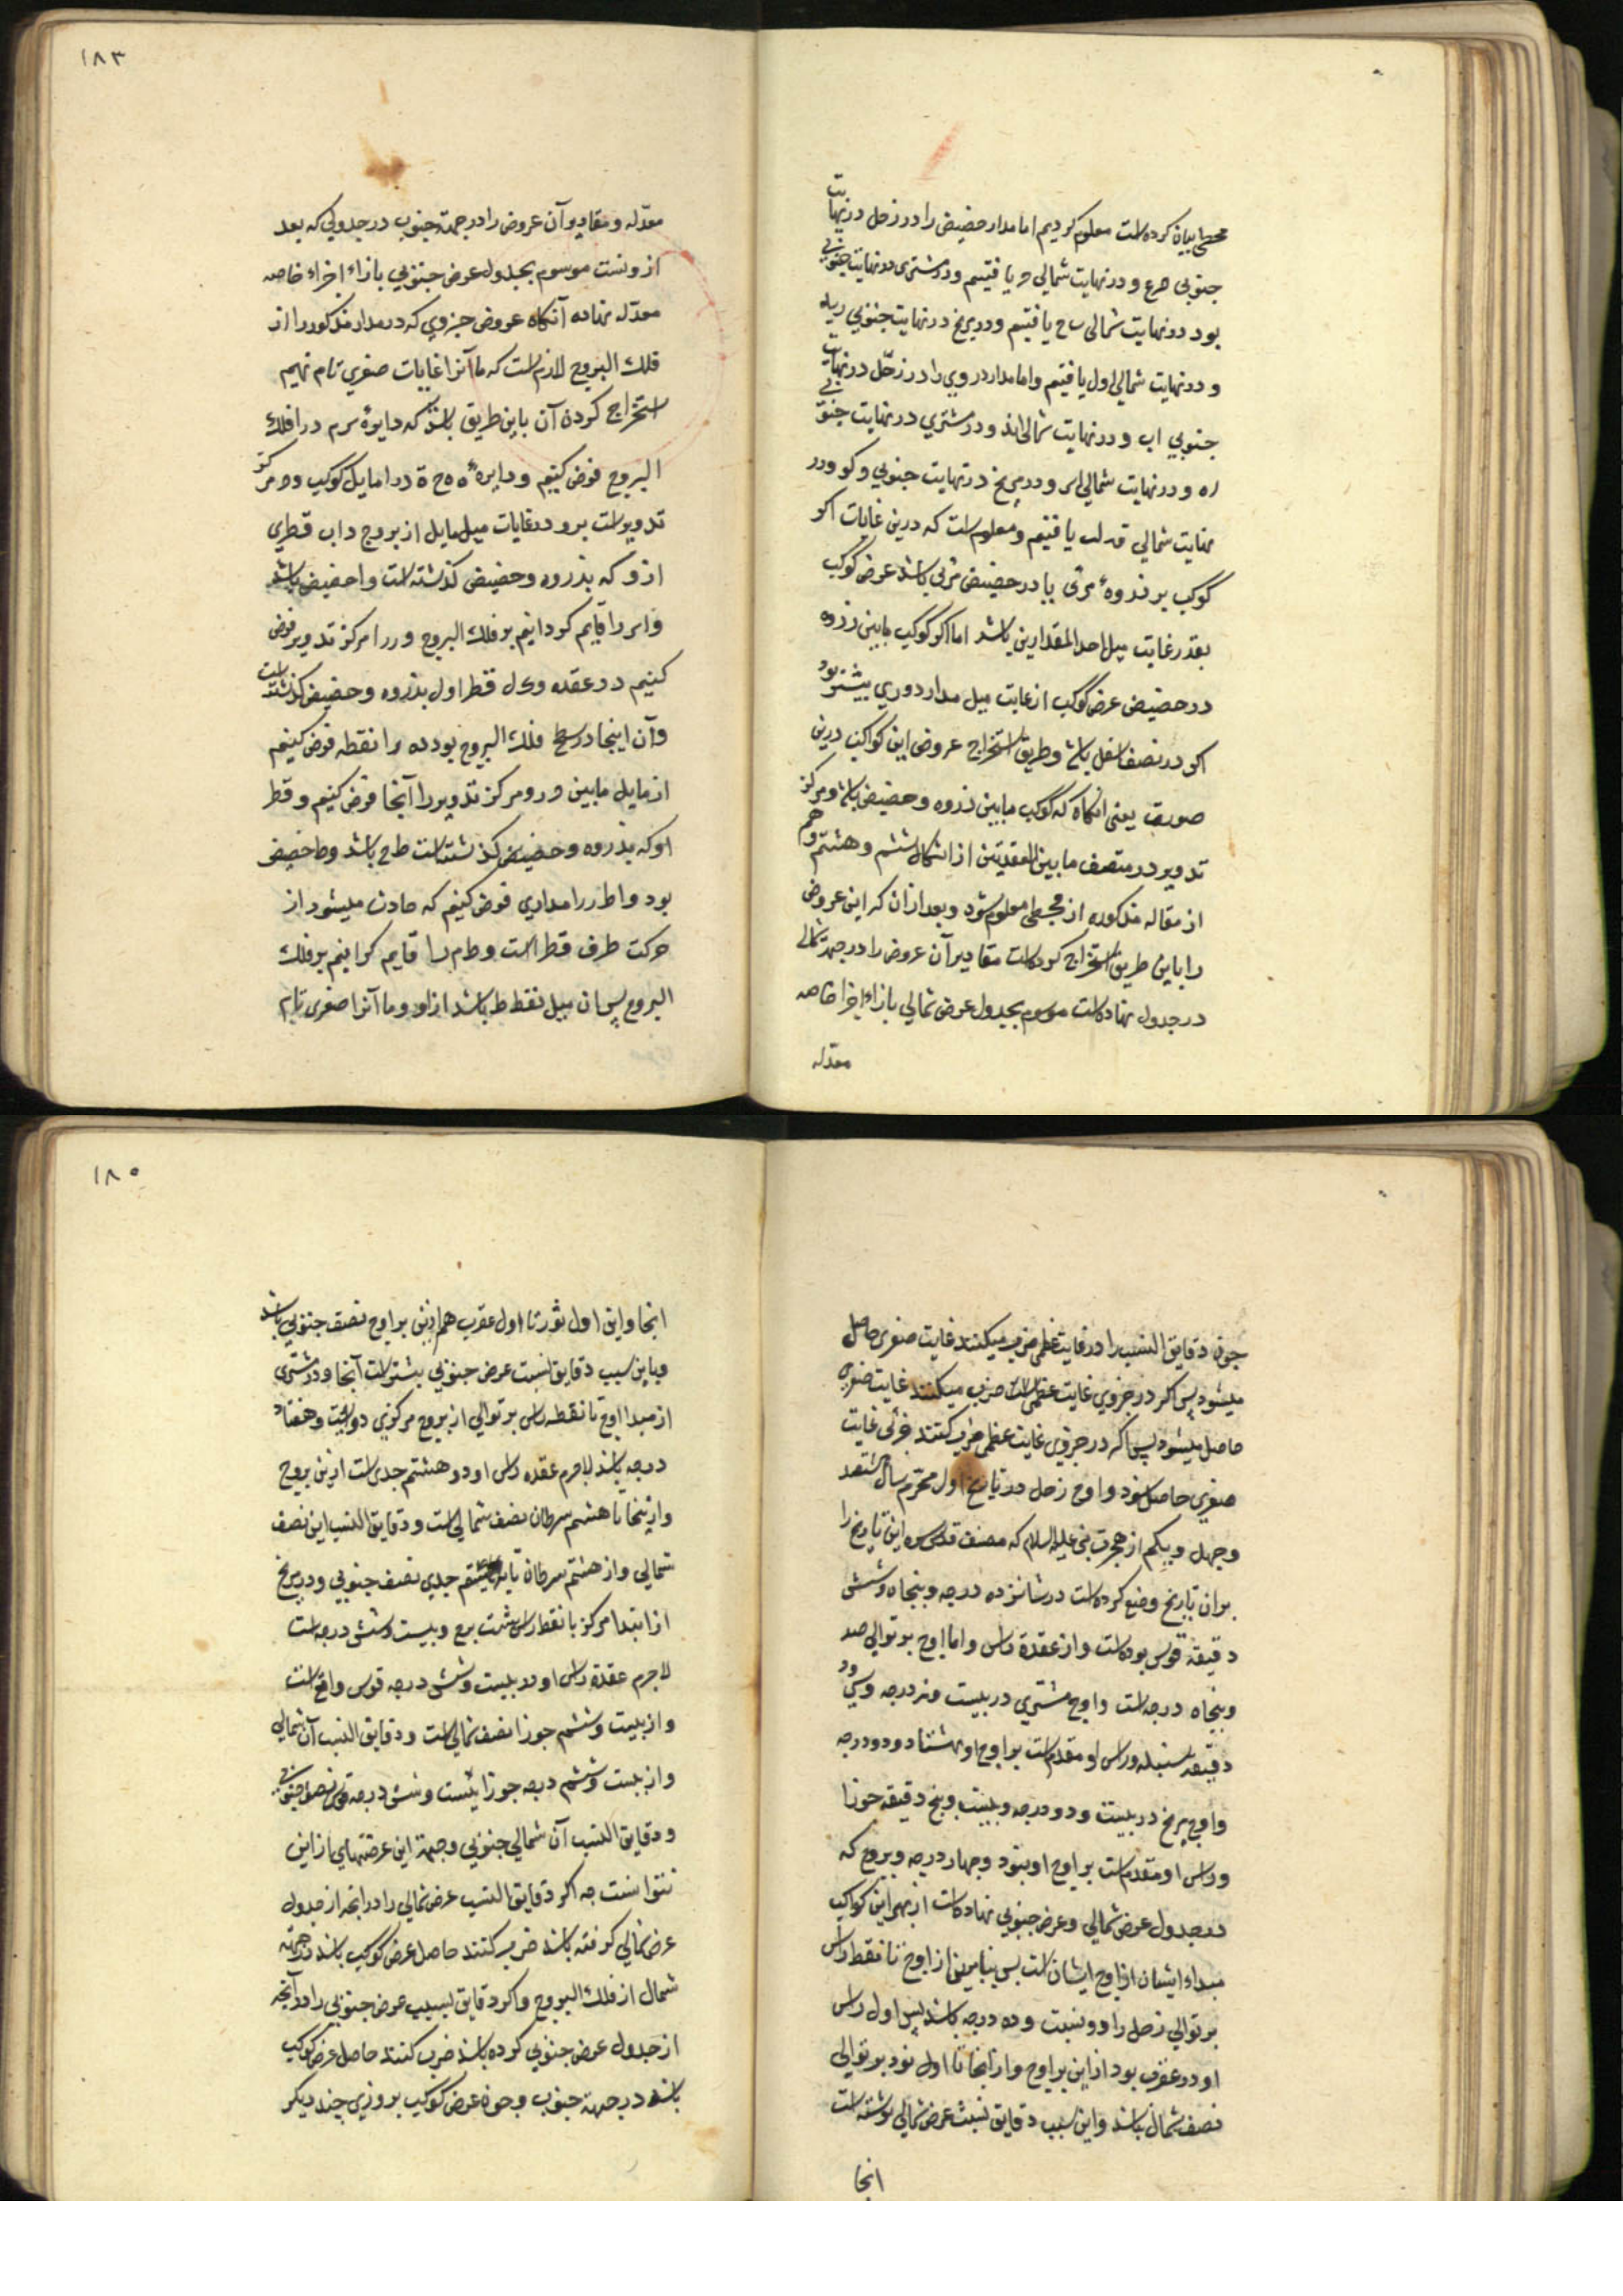 مجسطی بیان کرده است معلوم کردیم اما مدار حضیض را در زحل در نهایت
جنوبی و در نهایت شمالی یافتیم و در مشتری در نهایت جنوبی
بود در نهایت شمالی یافتیم و در مریخ در نهایت جنوبی
و در نهایت شمالی اول یافتیم و اما مدار دروی را در زحل در نهایت
جنوبی اب و در نهایت شمالی و در مشتری در نهایت جنوبی
اه و در نهایت شمالی و در مریخ در نهایت جنوبی و در
نهایت شمالی یافتیم و معلوم است که درین غایات اکر
کوکب بر ذروهٔ مرئی یا در حضیض مرئی باشد عرض کوکب
بقدر غایت میل احد المقدارین باشد اما اکر کوکب مابین ذروه
و حضیض عرض کوکب از غایت میل مدار دوری بیشتر بود
اکر در نصف اسفل باشد و طریق استخراج عروض این کواکب درین
صورت یعنی آنکاه که کوکب مابین ذروه و حضیض باشد و مرکز
تدویر در منتصف مابین العقدتین از اشکال ششم و هشتم و هم
از مقاله مذکوره از مجسطی معلوم شود و بعد از آن که این عروض
را باین طریق استخراج کرده است مقادیر آن عروض را در جهة شمالی
در جدول نهاده است موسوم بجدول عرض شمالی بازاء اجزا خاصه
معدله
١٨٣
معدّله و مقادیر آن عروض را در جهة جنوب در جدولی که بعد
ازوست موسوم بجدول عرض جنوبی بازاء اجزاء خاصه
معدّله نهاده آنکاه عروض جزوی که در مدار مذکور را از
فلك البروج لازم است که ما آنرا غایات صغری نام نهیم
استخراج کردن آن باین طریق باشد که دایرهٔ در افلك
البروج فرض کنیم و دایرهٔ مایل کوکب و مرکز
تدویر است برو در غایات میل مایل از بروج و اب قطری
ازو که بذروه و حضیض کذشته است و احضیض باشد
و را قایم کردانیم بر فلك البروج و را مرکز تدویر فرض
کنیم در عقده و کل قطر اول بذروه و حضیض کذشته است
و آن اینجا در سطح فلك البروج بود نقطه فرض کنیم
از مایل مابین و مرکز تدویر را آنجا فرض کنیم و قطر
او که بذروه و حضیض کذشته است طح باشد و ط حضیض
بود و را مداری فرض کنیم که حادث میشود از
حرکت طرف قطر است و را قایم کردانیم بر فلك
البروج پس آن میل نقطه ط باشد ازو و ما آنرا صغری نام
چون دقایق النسب را در غایت عظمی ضرب میکنند غایت صغری حاصل
میشود پس اکر در جزوی غایت عظمی ضرب میکنند غایت صغری
حاصل میشود پس اکر در جزوی غایت عظمی ضرب کنند جزئی غایت
صغری حاصل شود و اوج زحل در تاریخ اول محرم سال هشتصد
وچهل ویکم از هجرت نبی علیه السلام که مصنف قدس سره این تاریخ را
بران تاریخ وضع کرده است در شانزده درجه و پنجاه و شش
دقیقهٔ قوس بوده است و از عقدهٔ راس و اما اوج بر توالی صد
و پنجاه درجه است و اوج مشتری در بیست و نه درجه و سی و دو
دقیقه سنبله و راس او مقدم است بر اوج او هشتاد و دو درجه
و اوج مریخ در بیست و دو درجه و بیست و پنج دقیقه جوزا
و راس او مقدم است بر اوج او بنود و چهار درجه و بروج که
در جدول عرض شمالی و عرض جنوبی نهاده است از بهر این کواکب
مبداء ایشان از اوج ایشان است پس بنابرین از اوج تا نقطه راس
بر توالی زحل را دویست و ده درجه باشد پس اول راس
او در عقرب بود از این بر اوج و از آنجا تا اول ثور بر توالی
نصف شمال باشد و این سبب دقایق نسبت عرض شمالی نوشته است
انجا
١٨٥
انجا و این اول ثور تا اول عقرب هم ازین بر اوج نصف جنوبی باشد
و باین سبب دقایق نسبت عرض جنوبی بیشتر است آنجا و در مشتری
از مبدا اوج تا نقطه راس بر توالی از بروج مرکزی دویست و هفتاد
درجه باشد لاجرم عقده راس او در هشتم جدی است ازین بروج
و ازینجا تا هشتم سرطان نصف شمالی است و دقایق النسب این نصف
شمالی و از هشتم سرطان تا هشتم جدی نصف جنوبی و در مریخ
از ابتدا مرکز تا نقطه راس و بیست و شش درجه است
لاجرم عقدهٔ راس او در بیست و شش درجه قوس واقع است
و از بیست و ششم جوزا نصف شمالی است و دقایق النسب آن شمالی
و از بیست و ششم درجه جوزا بیست و شش درجه قوس نصف جنوبی
و دقایق النسب آن شمالی جنوبی و جهة این عرضهای از این
نتوانست چه اکر دقایق النسب عرض شمالی را در آنچه از جدول
عرض شمالی کرفته باشد ضرب کنند حاصل عرض کوکب باشد در جهة
شمال از فلك البروج و اکر دقایق نسبت عرض جنوبی را در آنچه
از جدول عرض جنوبی کرده باشد ضرب کنند حاصل عرض کوکب
باشد در جهة جنوب و چون عرض کوکب بروزی چند دیکر